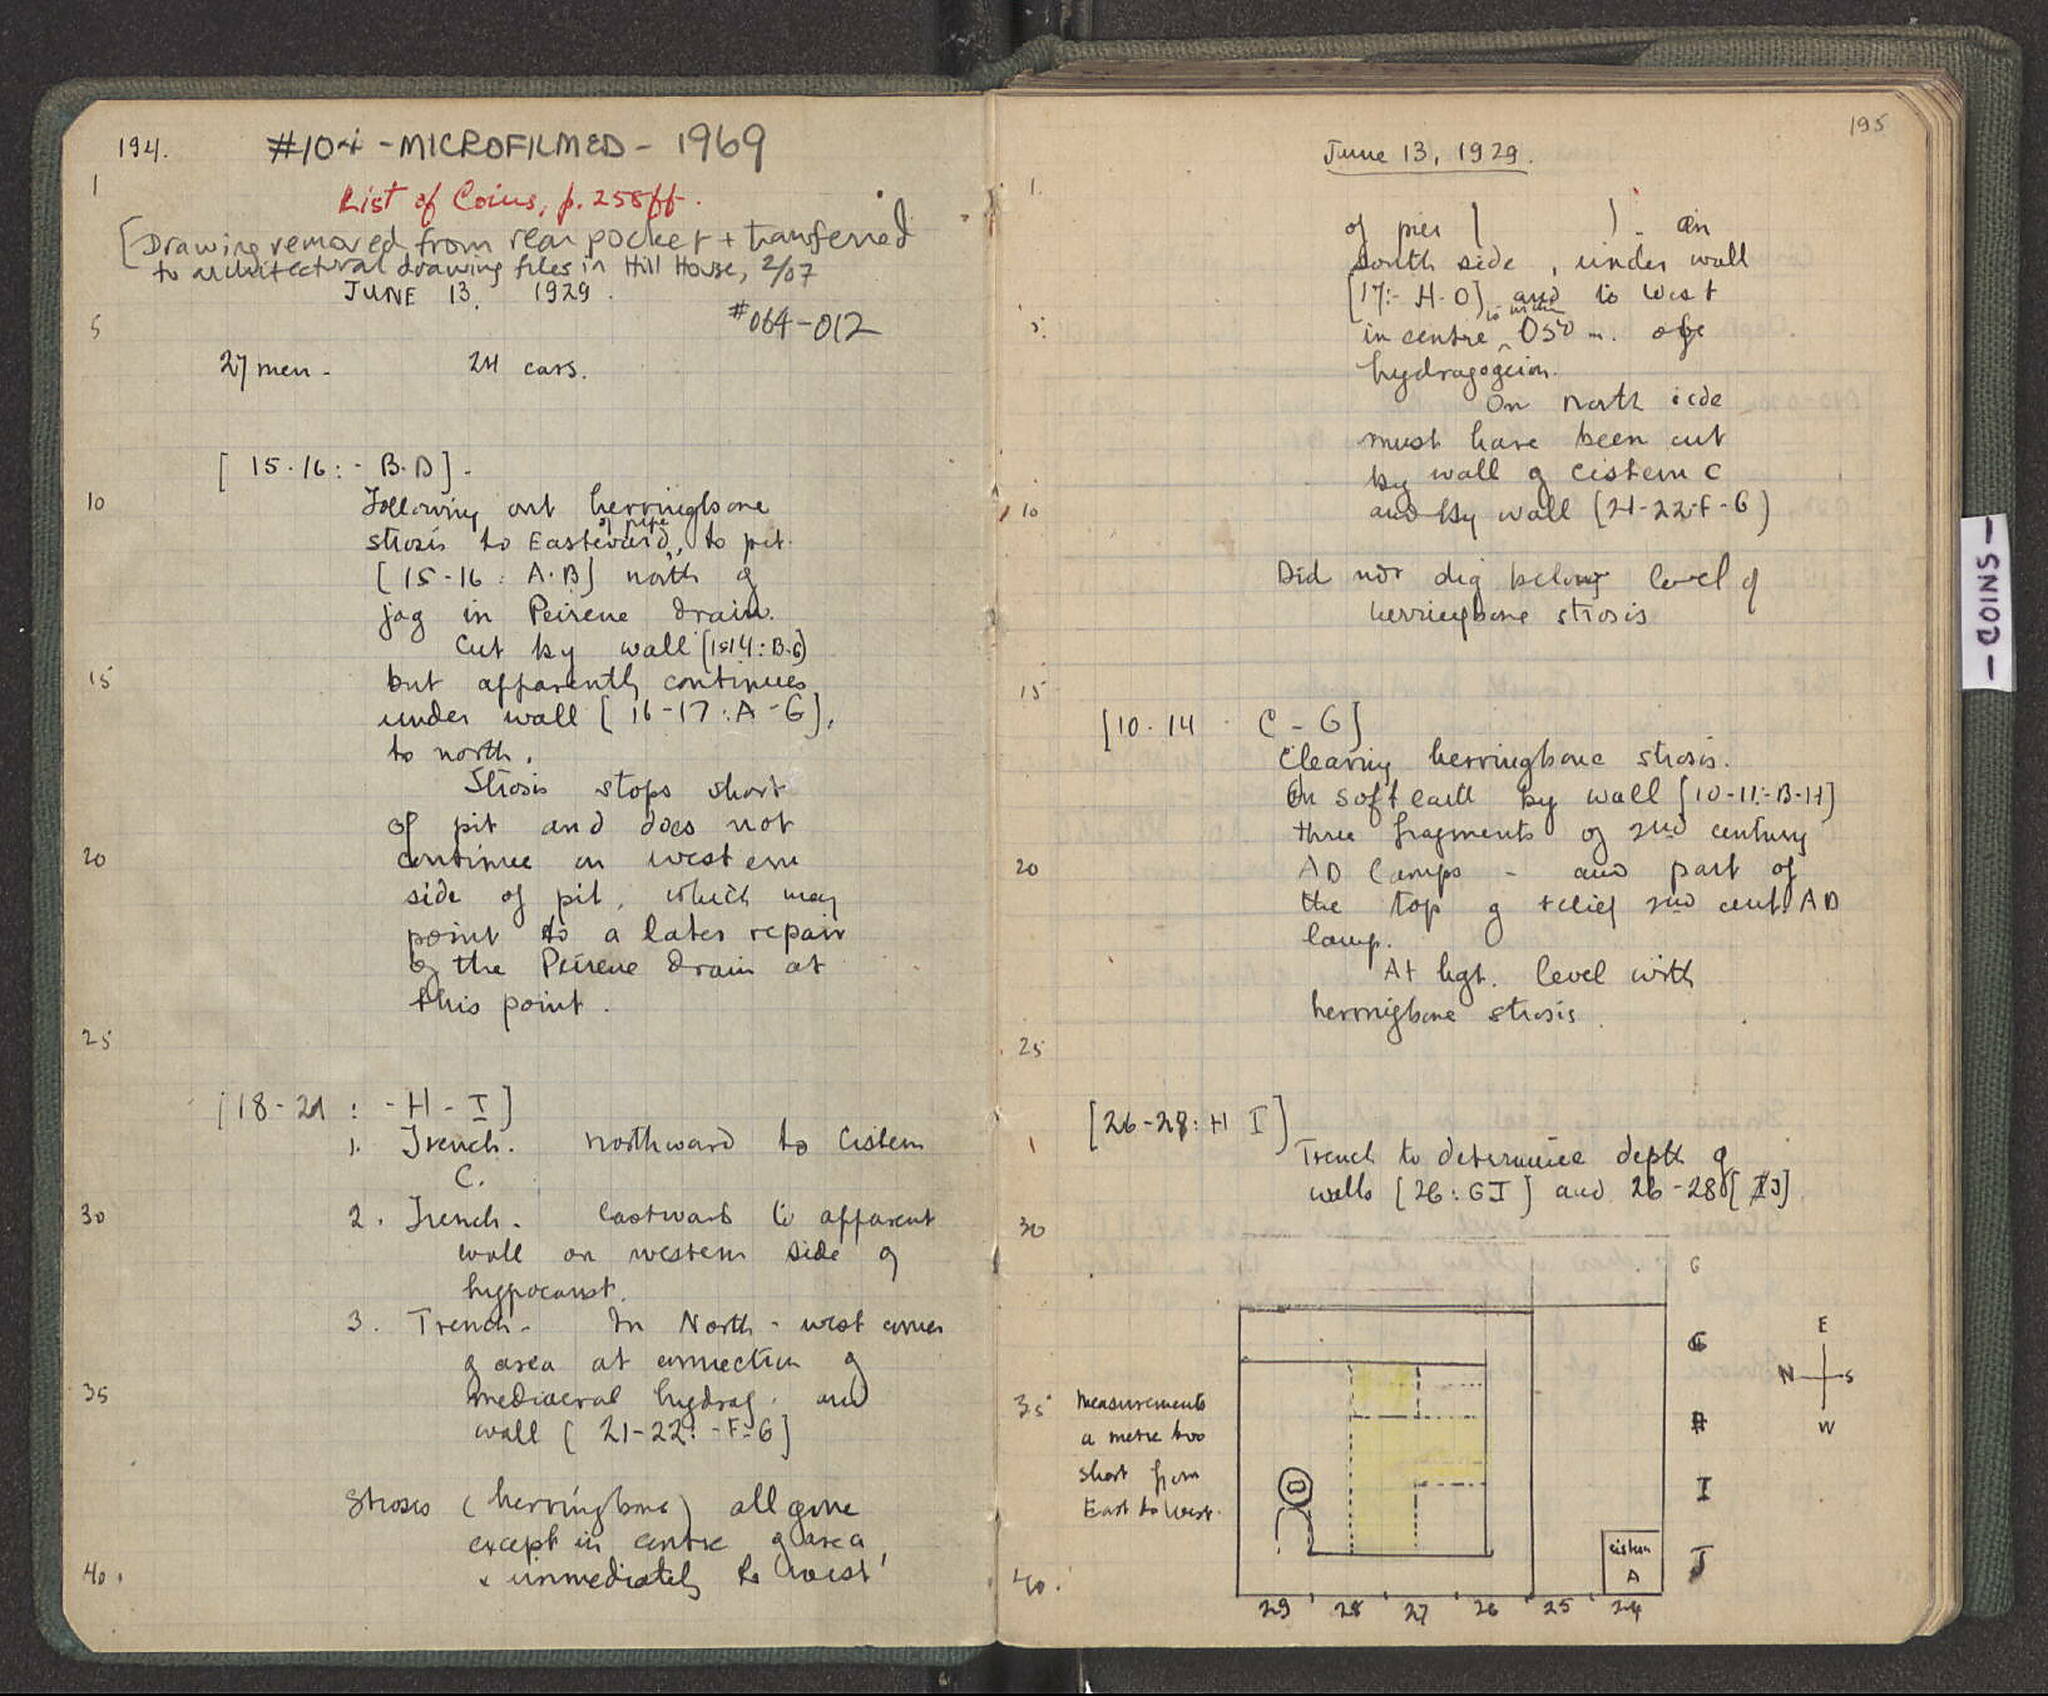 194.
#104 - MICROFILMED - 1969
List of Coins, p. 258ff.
[Drawing removed from rear pocket + transferred
to architectural drawing files in Hill House, 2/07
JUNE 13. 1929.
#064-012
27 men - 24 cars.
[ 15.16: - B.D] -
Following out herringbone
strosis to Eastward of pipe, to pit
[ 15-16 : A.B] north of
jog in Peirene drain.
Cut by wall
but apparently continues
under wall [ 16-17 : A - G],
to north.
Strosis stops short
of pit and does not
continue on western
side of pit, which may
point to a later repair
of the Peirene drain at
this point.
[18-21 : - H - I]
1. Trench. northward to Cistern
C.
2. Trench - Eastward to apparent
wall on western side of
hypocaust.
3. Trench - In North-west corner
of area at connection of
mediaeval hydrag. and
wall [ 21-22: -F-G]
Strosis (herringbone) all gone
except in centre of area
immediately to west
1
5
10
15
20
25
30
35
40.
195
June 13, 1929.
of pier ( ) - on
South side, under wall
[17:- H-O] and to West
in centre to within 0.50 m. of
hydragogeion.
On north side
must have been cut
by wall of cistern C
and by wall (21-22:F-G)
Did not dig below level of
herringbone strosis
[10-14 : C - G]
Clearing herringbone strosis.
In soft earth by wall [10-11:-B-H]
three fragments of 2nd century
AD lamps - and part of
the top of relief 2nd cent. AD
lamp.
At hgt. level with
herringbone strosis.
[26-28: H I]
Trench to determine depth of
walls [26: G I] and 26-28 [IJ]
Measurements
a metre too
short from
East to West.
G
G
H
I
J
E
N S
W
cistern
A
29 28 27 26 25 24
1.
5.
10
15
20
25
1
30
35
40.
- COINS -